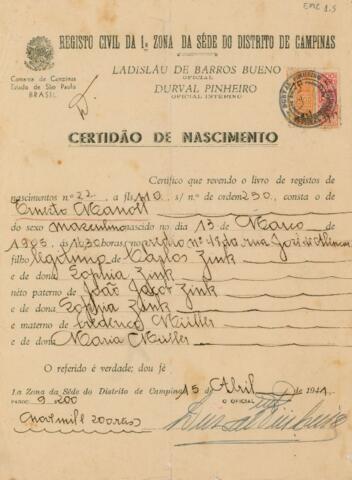 EMC 1.5
REGISTO CIVIL DA 1ª ZONA DA SÉDE DO DISTRITO DE CAMPINAS
LADISLÁU DE BARROS BUENO
OFICIAL
DURVAL PINHEIRO
OFICIAL INTERINO
Comarca de Campinas
Estado de São Paulo
BRASIL
CERTIDÃO DE NASCIMENTO
Certifico que revendo o livro de registos de
nascimentos n.º 22 a fls 110 s/ n.º de ordem 290, consta o de
Ernesto
do sexo masculino nascido no dia 13 de Março
de 1905, ás 16,30 horas no prédio nº da rua José de Alencar
filho legitimo de Carlos Zink
e de dona Sophia Zink
néto paterno de João Jacob Zink
e de dona Sophia Zink
e materno de Frederico Müller
e de dona Maria Müller
O referido é verdade; dou fé
1.a Zona da Séde do Distrito de Campinas 15 de Abril de 1941.
9.200 O OFICIAL
(nove mil 200 reis)
Pinheiro